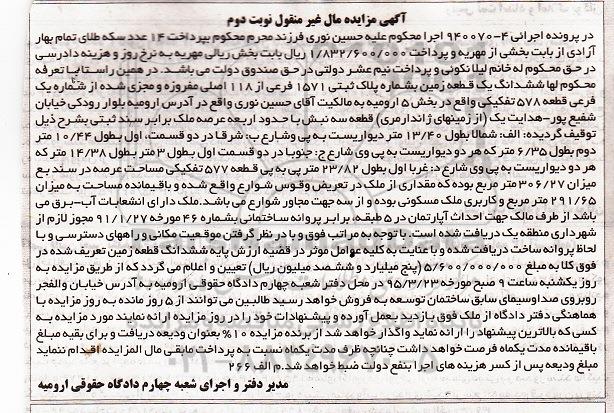 آگهی مزایده مال غیر منقول نوبت دوم
در پرونده اجرائی ۴-۹۴۰۰۷۰ اجرا محکوم علیه حسین نوری فرزند محرم محکوم بپرداخت ۱۴ عدد سکه طلای تمام بهار
آزادی از بابت بخشی از مهریه و پرداخت ۱/۸۳۲/۶۰۰/۰۰۰ ریال بابت بخش ریالی مهریه به نرخ روز و هزینه دادرسی
در حق محکوم له خانم لیلا نکونی و پرداخت نیم عشر دولتی در حق صندوق دولت می باشد. در همین راستا با تعرفه
محکوم لها ششدانگ یک قطعه زمین بشماره پلاک ثبتی ۱۵۷۱ فرعی از ۱۱۸ اصلی مفروزه و مجزی شده از شماره یک
فرعی قطعه ۵۷۸ تفکیکی واقع در بخش ۵ ارومیه به مالکیت آقای حسین نوری واقع در آدرس ارومیه بلوار رودکی خیابان
شفیع پور-هدایت یک (از زمینهای ژاندارمری) قطعه سه نبش با حدود اربعه عرصه ملک برابر سند ثبتی بشرح ذیل
توقیف گردیده: الف: شمالا بطول ۱۳/۴۰ متر دیواریست به پی وشارع ب: شرقا در دو قسمت، اول بطول ۱۰/۴۴ متر
دوم بطول ۶/۳۵ متر که هر دو دیواریست به پی وی شارع ج: جنوبا در دو قسمت اول بطول ۳ متر بطول ۱۴/۳۸ متر که
هر دو دیواریست به پی وی شارع د: غربا اول بطول ۲۳/۸۲ متر پی به پی قطعه ۵۷۷ تفکیکی مساحت عرصه در سند بع
میزان ۳۰۶/۲۷ متر مربع بوده که مقداری از ملک در تعریض وقوس شوارع واقع شده و باقیمانده مساحت به میزان
۲۹۱/۶۵ متر مربع و کاربری ملک مسکونی بوده و از سه جهت مجاور شوارع می باشد. ملک دارای انشعابات آب-برق می
باشد از طرف مالک جهت احداث آپارتمان در ۵ طبقه برابر پروانه ساختمانی بشماره ۴۶ مورخه ۹۱/۱/۲۷ مجوز لازم از
شهرداری منطقه یک دریافت شده است. با توجه به مراتب فوق و با در نظر گرفتن موقعیت مکانی و راههای دسترسی و با
لحاظ پروانه ساخت دریافت شده و با عنایت به کلیه عوامل موثر در قضیه ارزش پایه ششدانگ قطعه زمین تعریف شده در
فوق کلا به مبلغ ۵/۶۰۰/۰۰۰/۰۰۰ (پنج میلیارد و ششصد میلیون ریال) تعیین و اعلام می گردد که از طریق مزایده به
روز یکشنبه ساعت ۹ صبح مورخه ۹۵/۳/۲۳ در محل دفتر شعبه چهارم دادگاه حقوقی ارومیه به آدرس خیابان والفجر
روبروی صداوسیمای سابق ساختمان توسعه به فروش خواهد رسید طالبین می توانند از ۵ روز مانده به روز مزایده با
هماهنگی دفتر دادگاه از ملک فوق بازدید بعمل آورده و پیشنهادات خود را در روز مزایده ارائه نمایند مورد مزایده به
کسی که بالاترین پیشنهاد را ارائه نماید واگذار خواهد شد از برنده مزایده ۱۰% بعنوان ودیعه دریافت و برای بقیه مبلغ
باقیمانده مدت یکماه فرصت خواهد داشت چنانچه ظرف مدت یکماه نسبت به پرداخت مابقی مال المزایده اقدام ننماید
مبلغ ودیعه پس از کسر هزینه های اجرا بنفع دولت ضبط خواهد شد. م الف ۲۶۶
مدیر دفتر و اجرای شعبه چهارم دادگاه حقوقی ارومیه